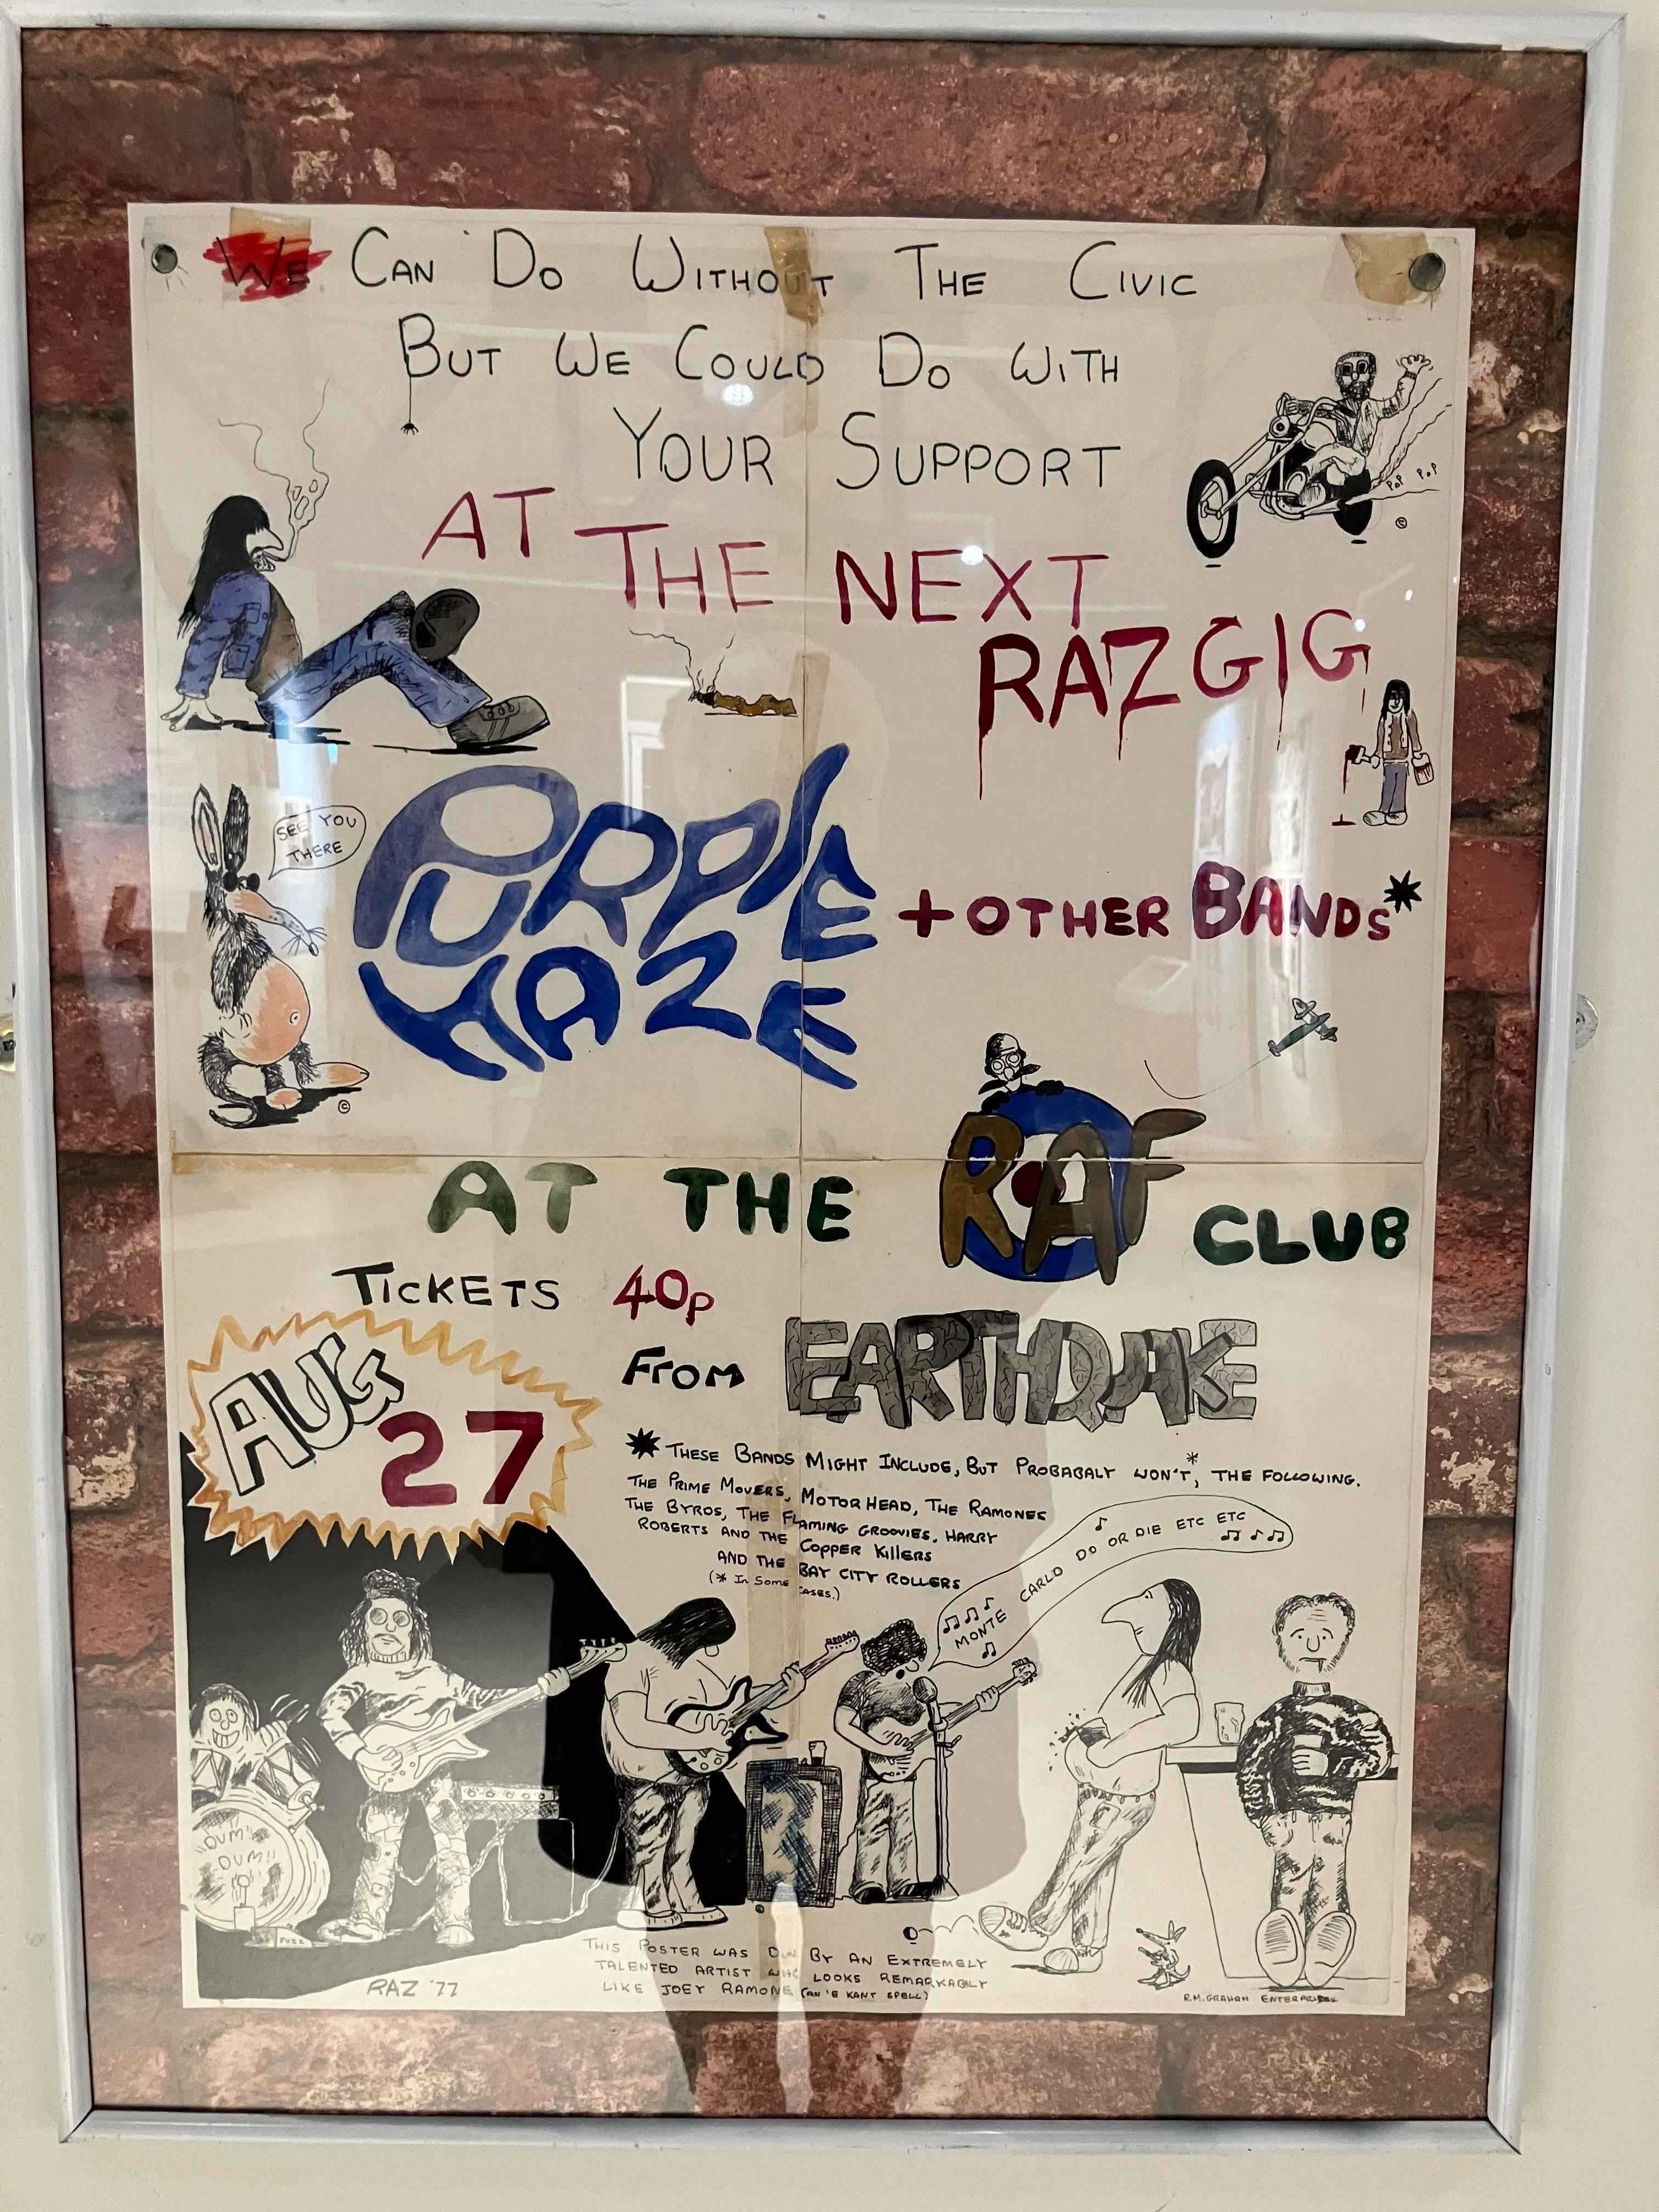 WE CAN DO WITHOUT THE CIVIC
BUT WE COULD DO WITH
YOUR SUPPORT
AT THE NEXT
RAZGIG
POP POP
©
SEE YOU
THERE
PURPLE
HAZE
+ OTHER BANDS*
©
AT THE RAF CLUB
TICKETS 40p
FROM EARTHQUAKE
AUG
27
* THESE BANDS MIGHT INCLUDE, BUT PROBABALY WON'T*, THE FOLLOWING.
THE PRIME MOVERS, MOTORHEAD, THE RAMONES
THE BYRDS, THE FLAMING GROOVIES, HARRY
ROBERTS AND THE COPPER KILLERS
AND THE BAY CITY ROLLERS
(* IN SOME CASES.)
MONTE CARLO DO OR DIE ETC ETC
DUM!!
DUM!!
FUZZ
THIS POSTER WAS DUN BY AN EXTREMELY
TALENTED ARTIST WHO LOOKS REMARKABLY
LIKE JOEY RAMONE (AN 'E KANT SPELL)
RAZ '77
R.M. GRAHAM ENTERPRISES